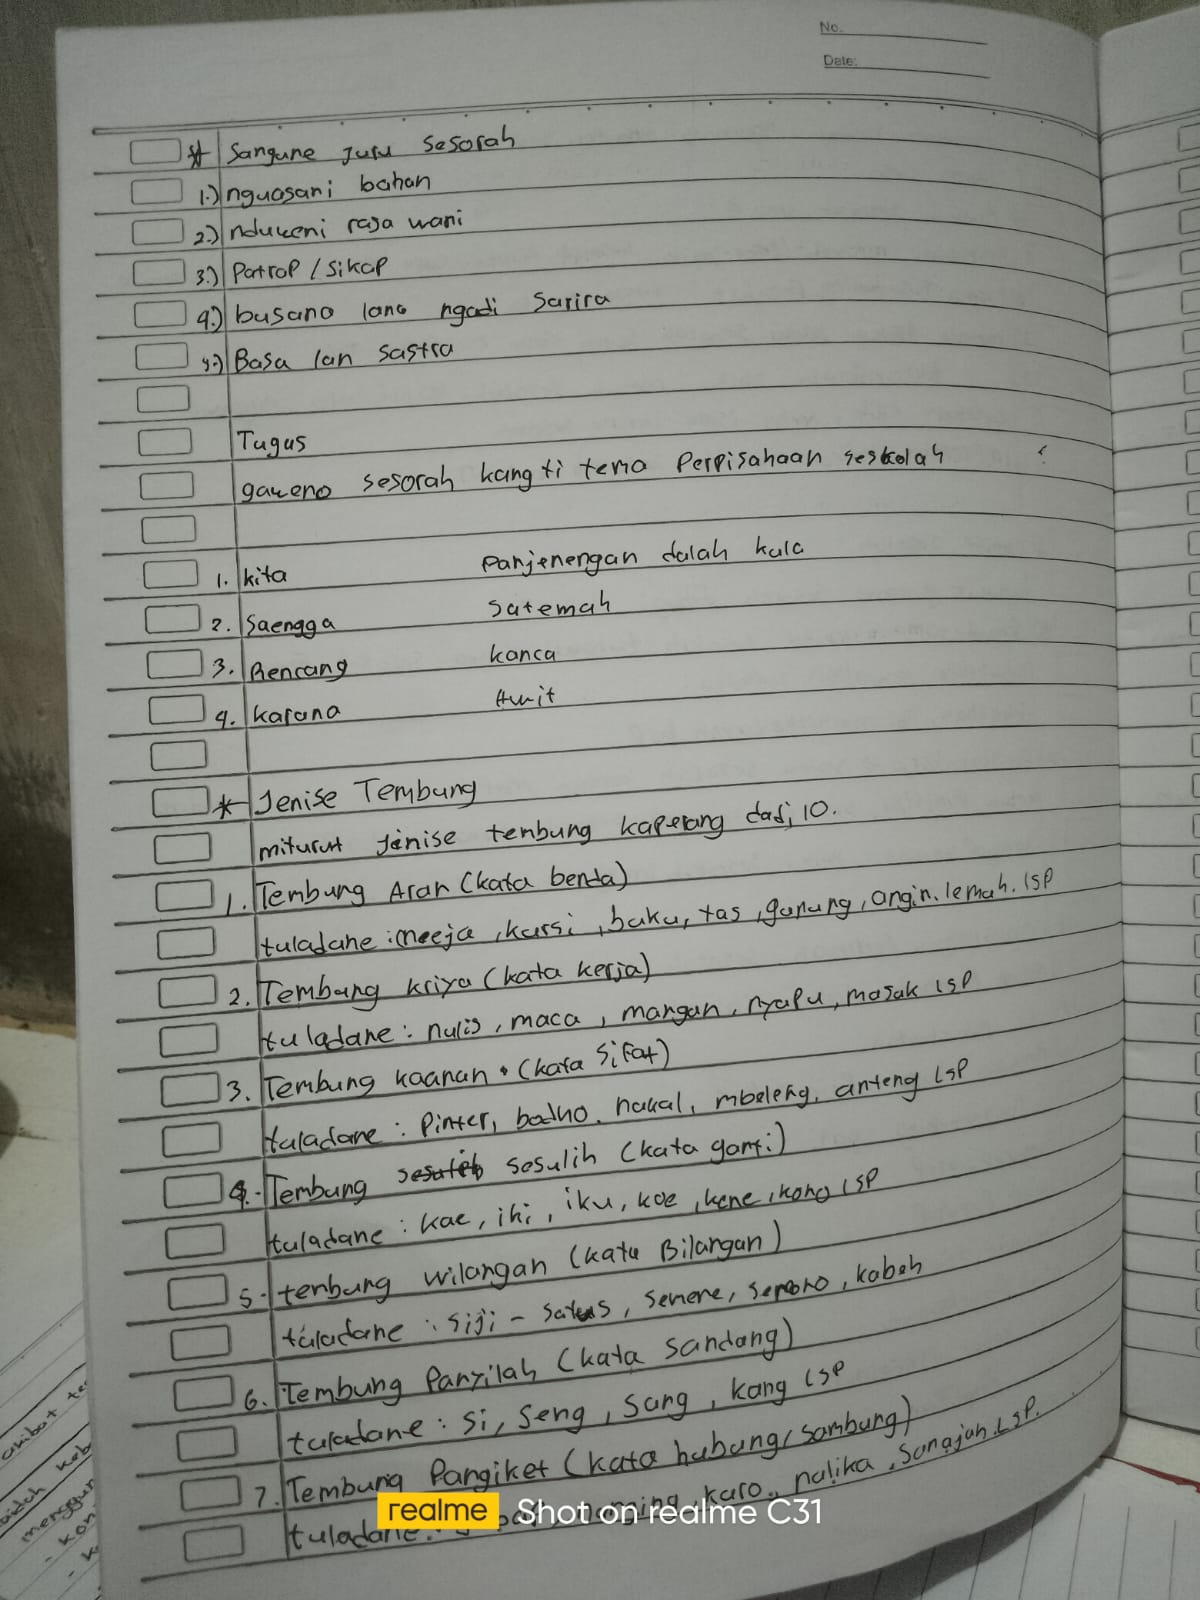 No.
Date:
* Sangune juru sesorah
1.) nguasani bahan
2.) nduweni rasa wani
3.) Patrap / sikap
4.) busana lana ngadi sarira
5.) Basa lan sastra
Tugas
gaweno sesorah kang ti tema Perpisahaan seskolah
1. kita Panjenengan dalah kula
2. Saengga Satemah
3. Rencang kanca
4. karana Awit
* Jenise Tembung
miturut jenise tembung kaperang dadi 10.
1. Tembung Aran (kata benda)
tuladane : meeja , kursi , buku, tas , gunung , angin. lemah. LSP
2. Tembung kriya (kata kerja)
tuladane : nulis , maca , mangan , nyapu , masak LSP
3. Tembung kaanan . (kata sifat)
tuladane : Pinter, bodho. nakal , mbeleng, anteng LSP
4. Tembung sesulih (kata ganti)
tuladane : kae, iki , iku, koe , kene , kono LSP
5. tembung wilangan (kata Bilangan)
tuladane : siji - satus , semene, semono , kabeh
6. Tembung Panyilah (kata sandang)
tuladane : si, Seng , Sang , kang LSP
7. Tembung Pangiket (kata hubung/sambung)
tuladane: karo., nalika , Sanajan LSP.
realme Shot on realme C31
akibat
keb
menggun
- kon
- k